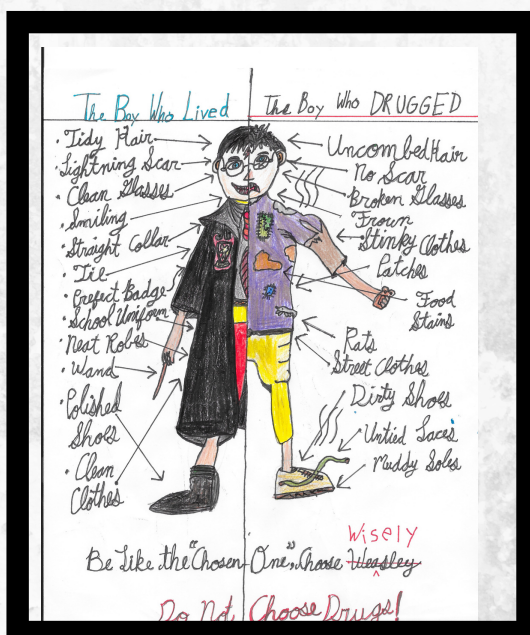 The Boy Who Lived
The Boy Who DRUGGED
· Tidy Hair
· Lightning Scar
· Clean Glasses
· Smiling
· Straight Collar
· Tie
· Prefect Badge
· School Uniform
· Neat Robes
· Wand
· Polished
Shoes
· Clean
Clothes
Uncombed Hair
No Scar
Broken Glasses
Frown
Stinky Clothes
Patches
Food
Stains
Rats
Street Clothes
Dirty Shoes
Untied Laces
Muddy Soles
Wisely
Be Like the "Chosen One", Choose Weasley
Do Not Choose Drugs!